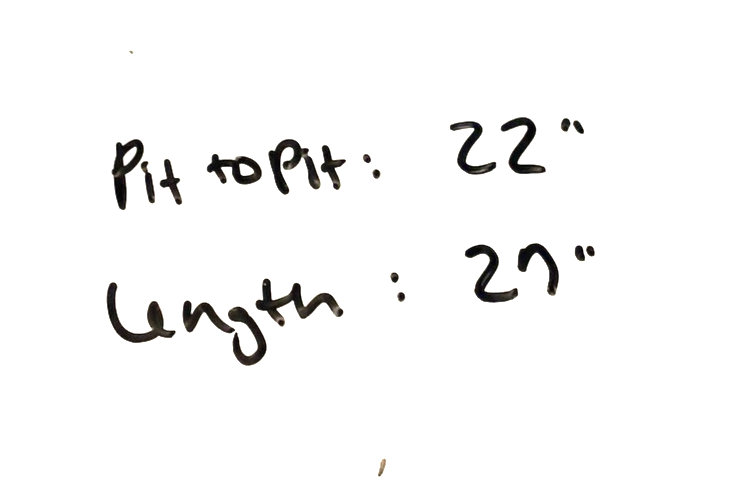 Pit to Pit: 22"
Length: 27"